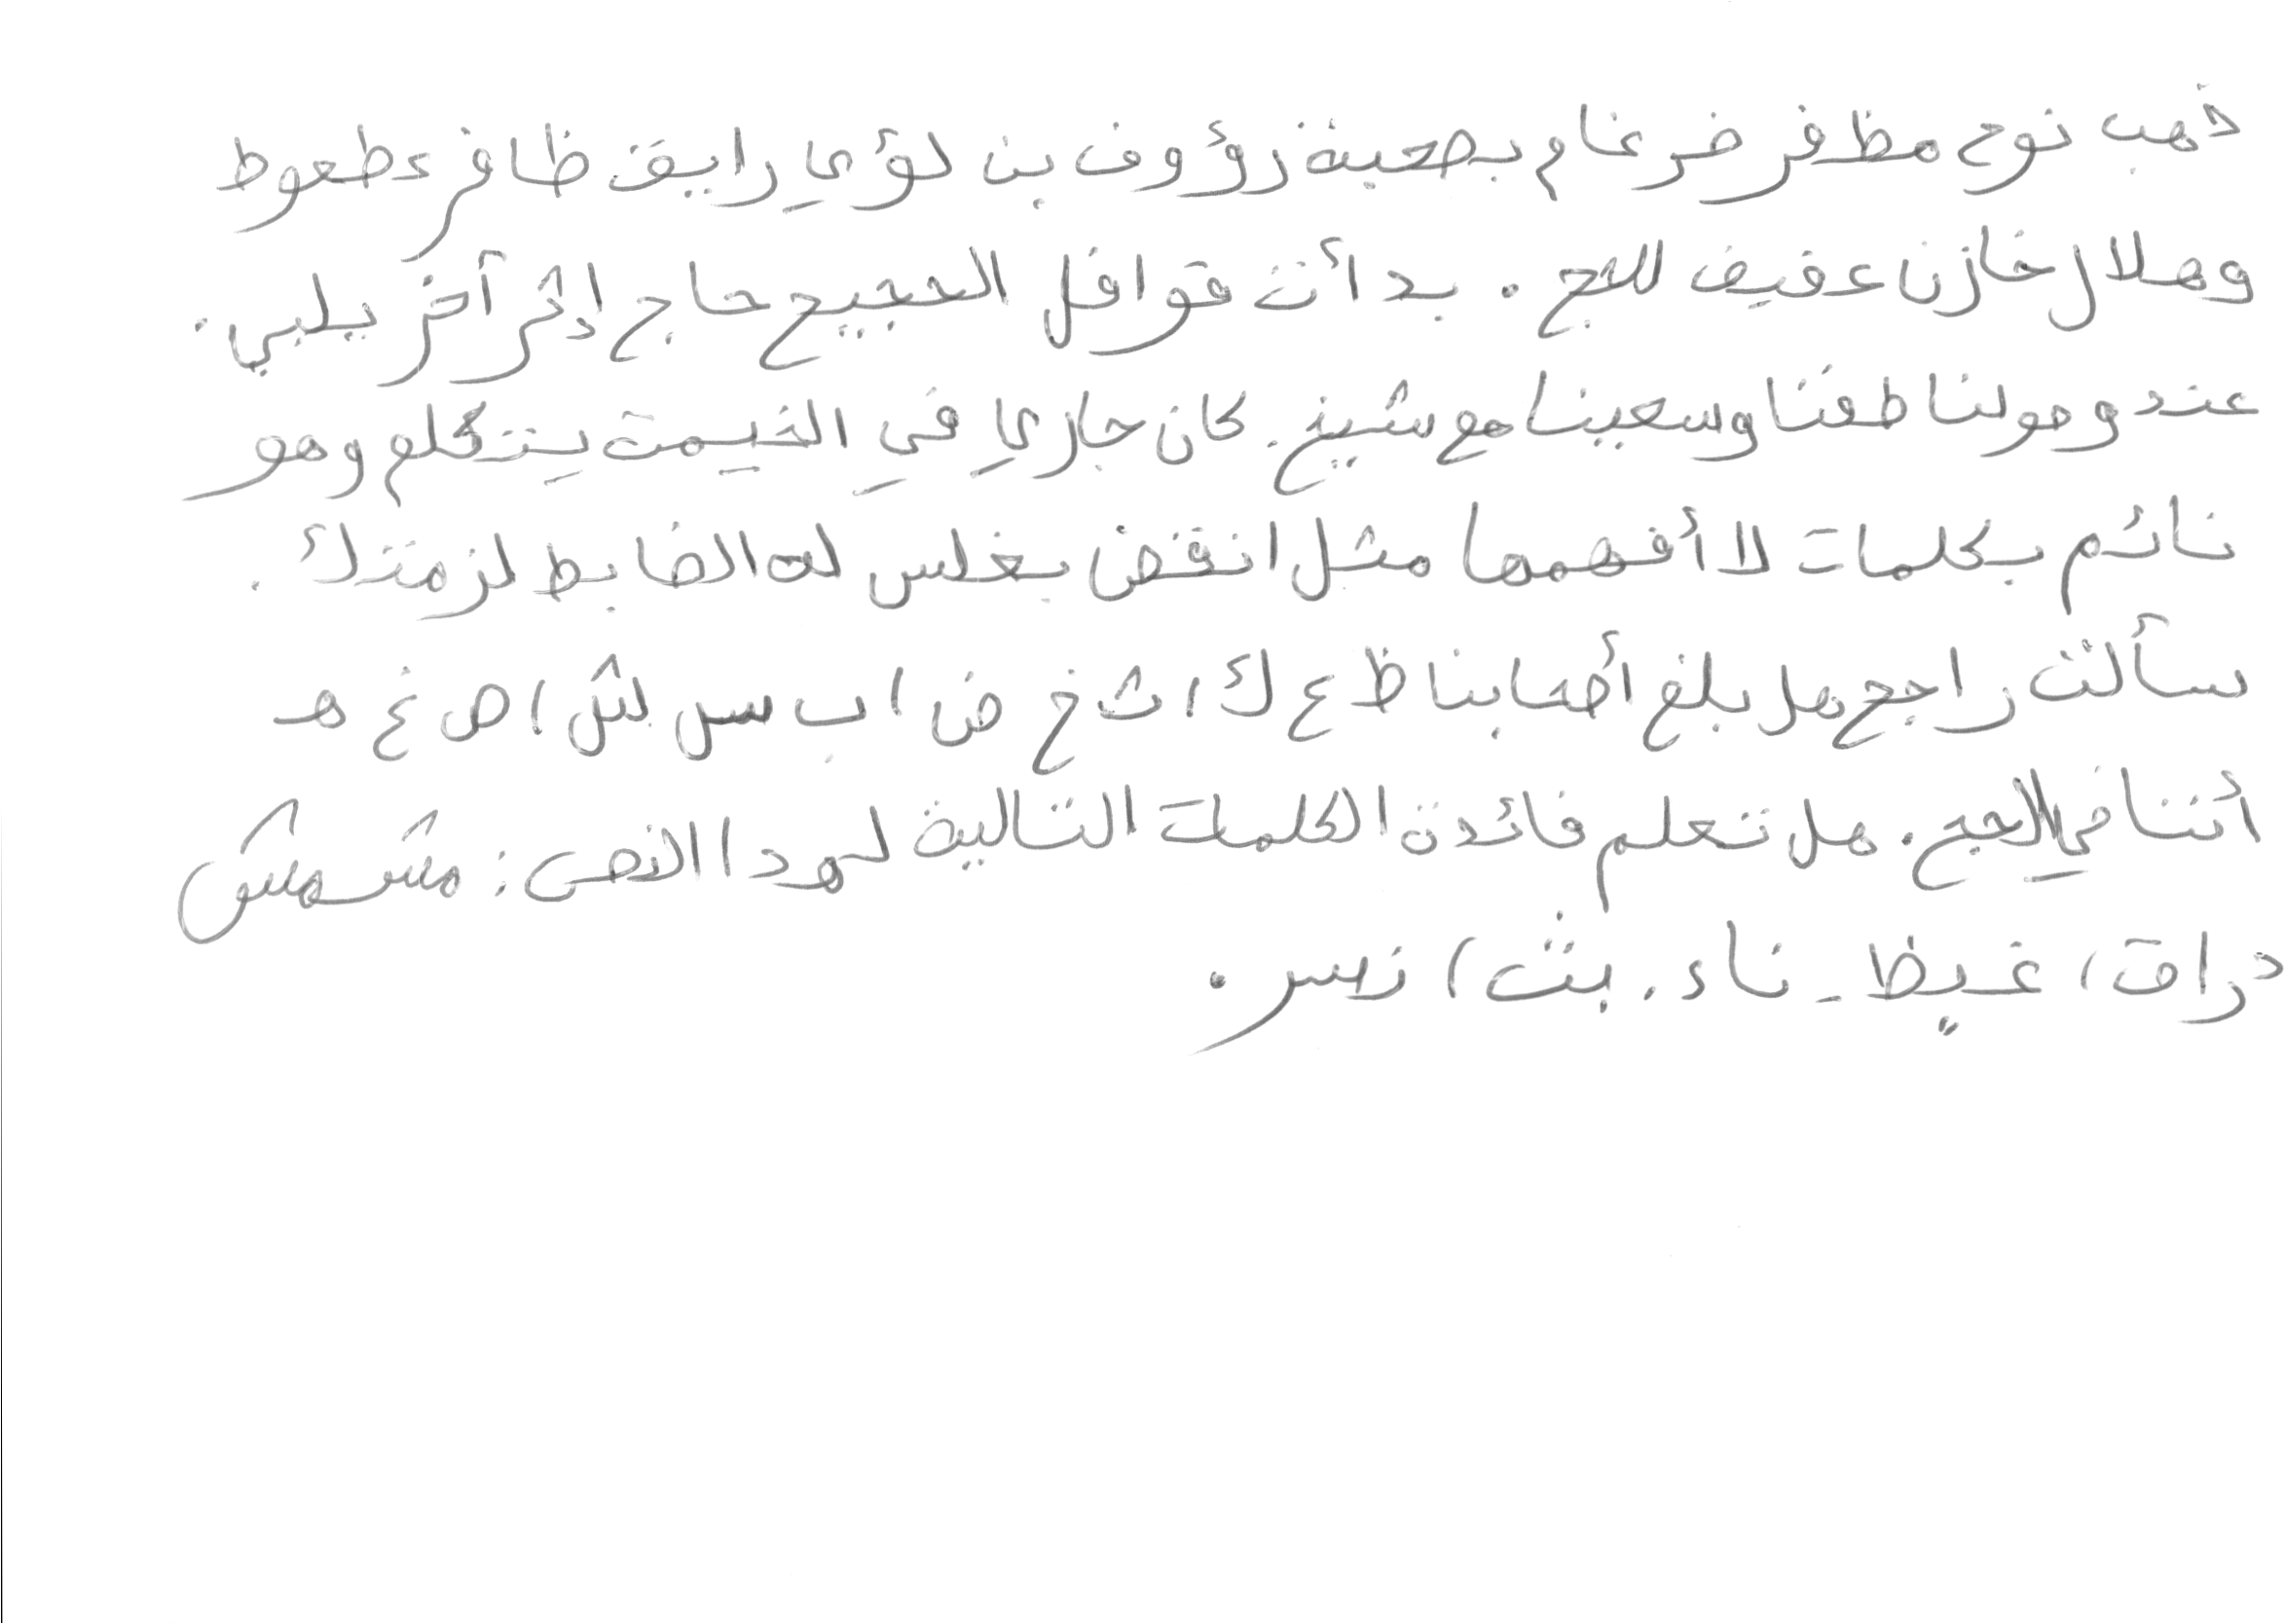 ذهب نوح مظفر ضرغام بصحبة رؤوف بن لؤي رايق ظافر عطعوط
وهلال خازن عفيف للحج . بدأت قوافل الحجيج حاج إثر آخر يلبي .
عند وصولنا طفنا وسعينا مع شيخ . كان جاري في الخيمة يتكلم وهو
نائم بكلمات لا أفهمها مثل انقض بغلس له الضابط لزمتك .
سألت راجح هل بلغ أصحابنا ظ ع ك ، ث خ ض ، ب س ش ، ص غ هـ
أننا في الحج . هل تعلم فائدة الكلمات التالية لهذا النص : مشمش
ذراق ، غيظ - ناء . بث ، نسر .